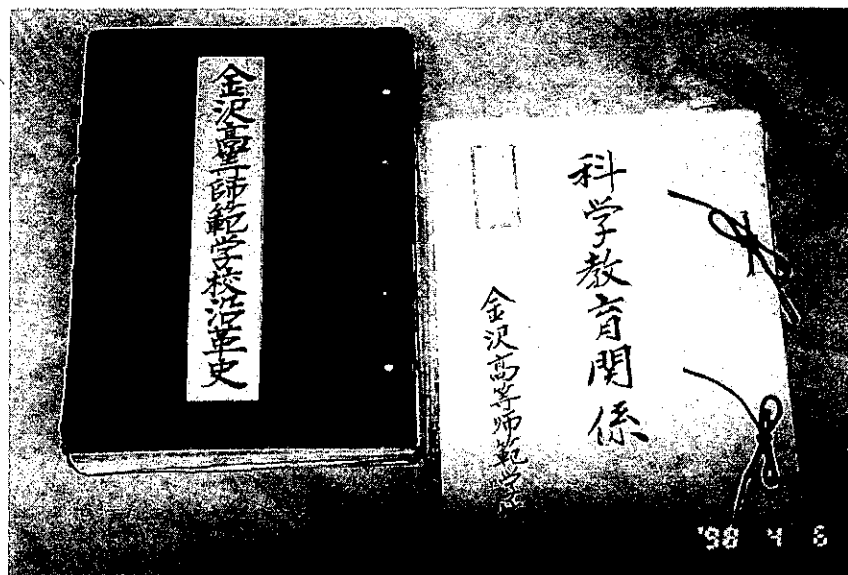 金沢高等師範学校沿革史
科学教育関係
金沢高等師範学
'98 4 6